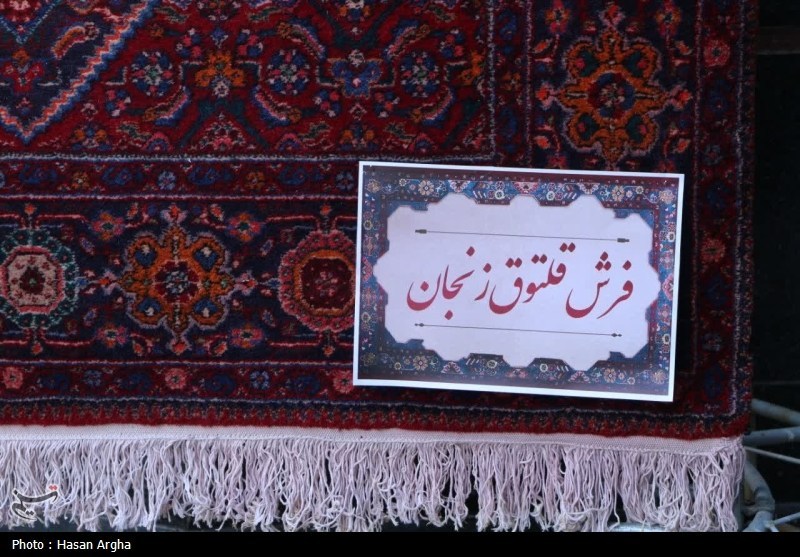 فرش قلتوق زنجان
تسنیم
Photo : Hasan Argha